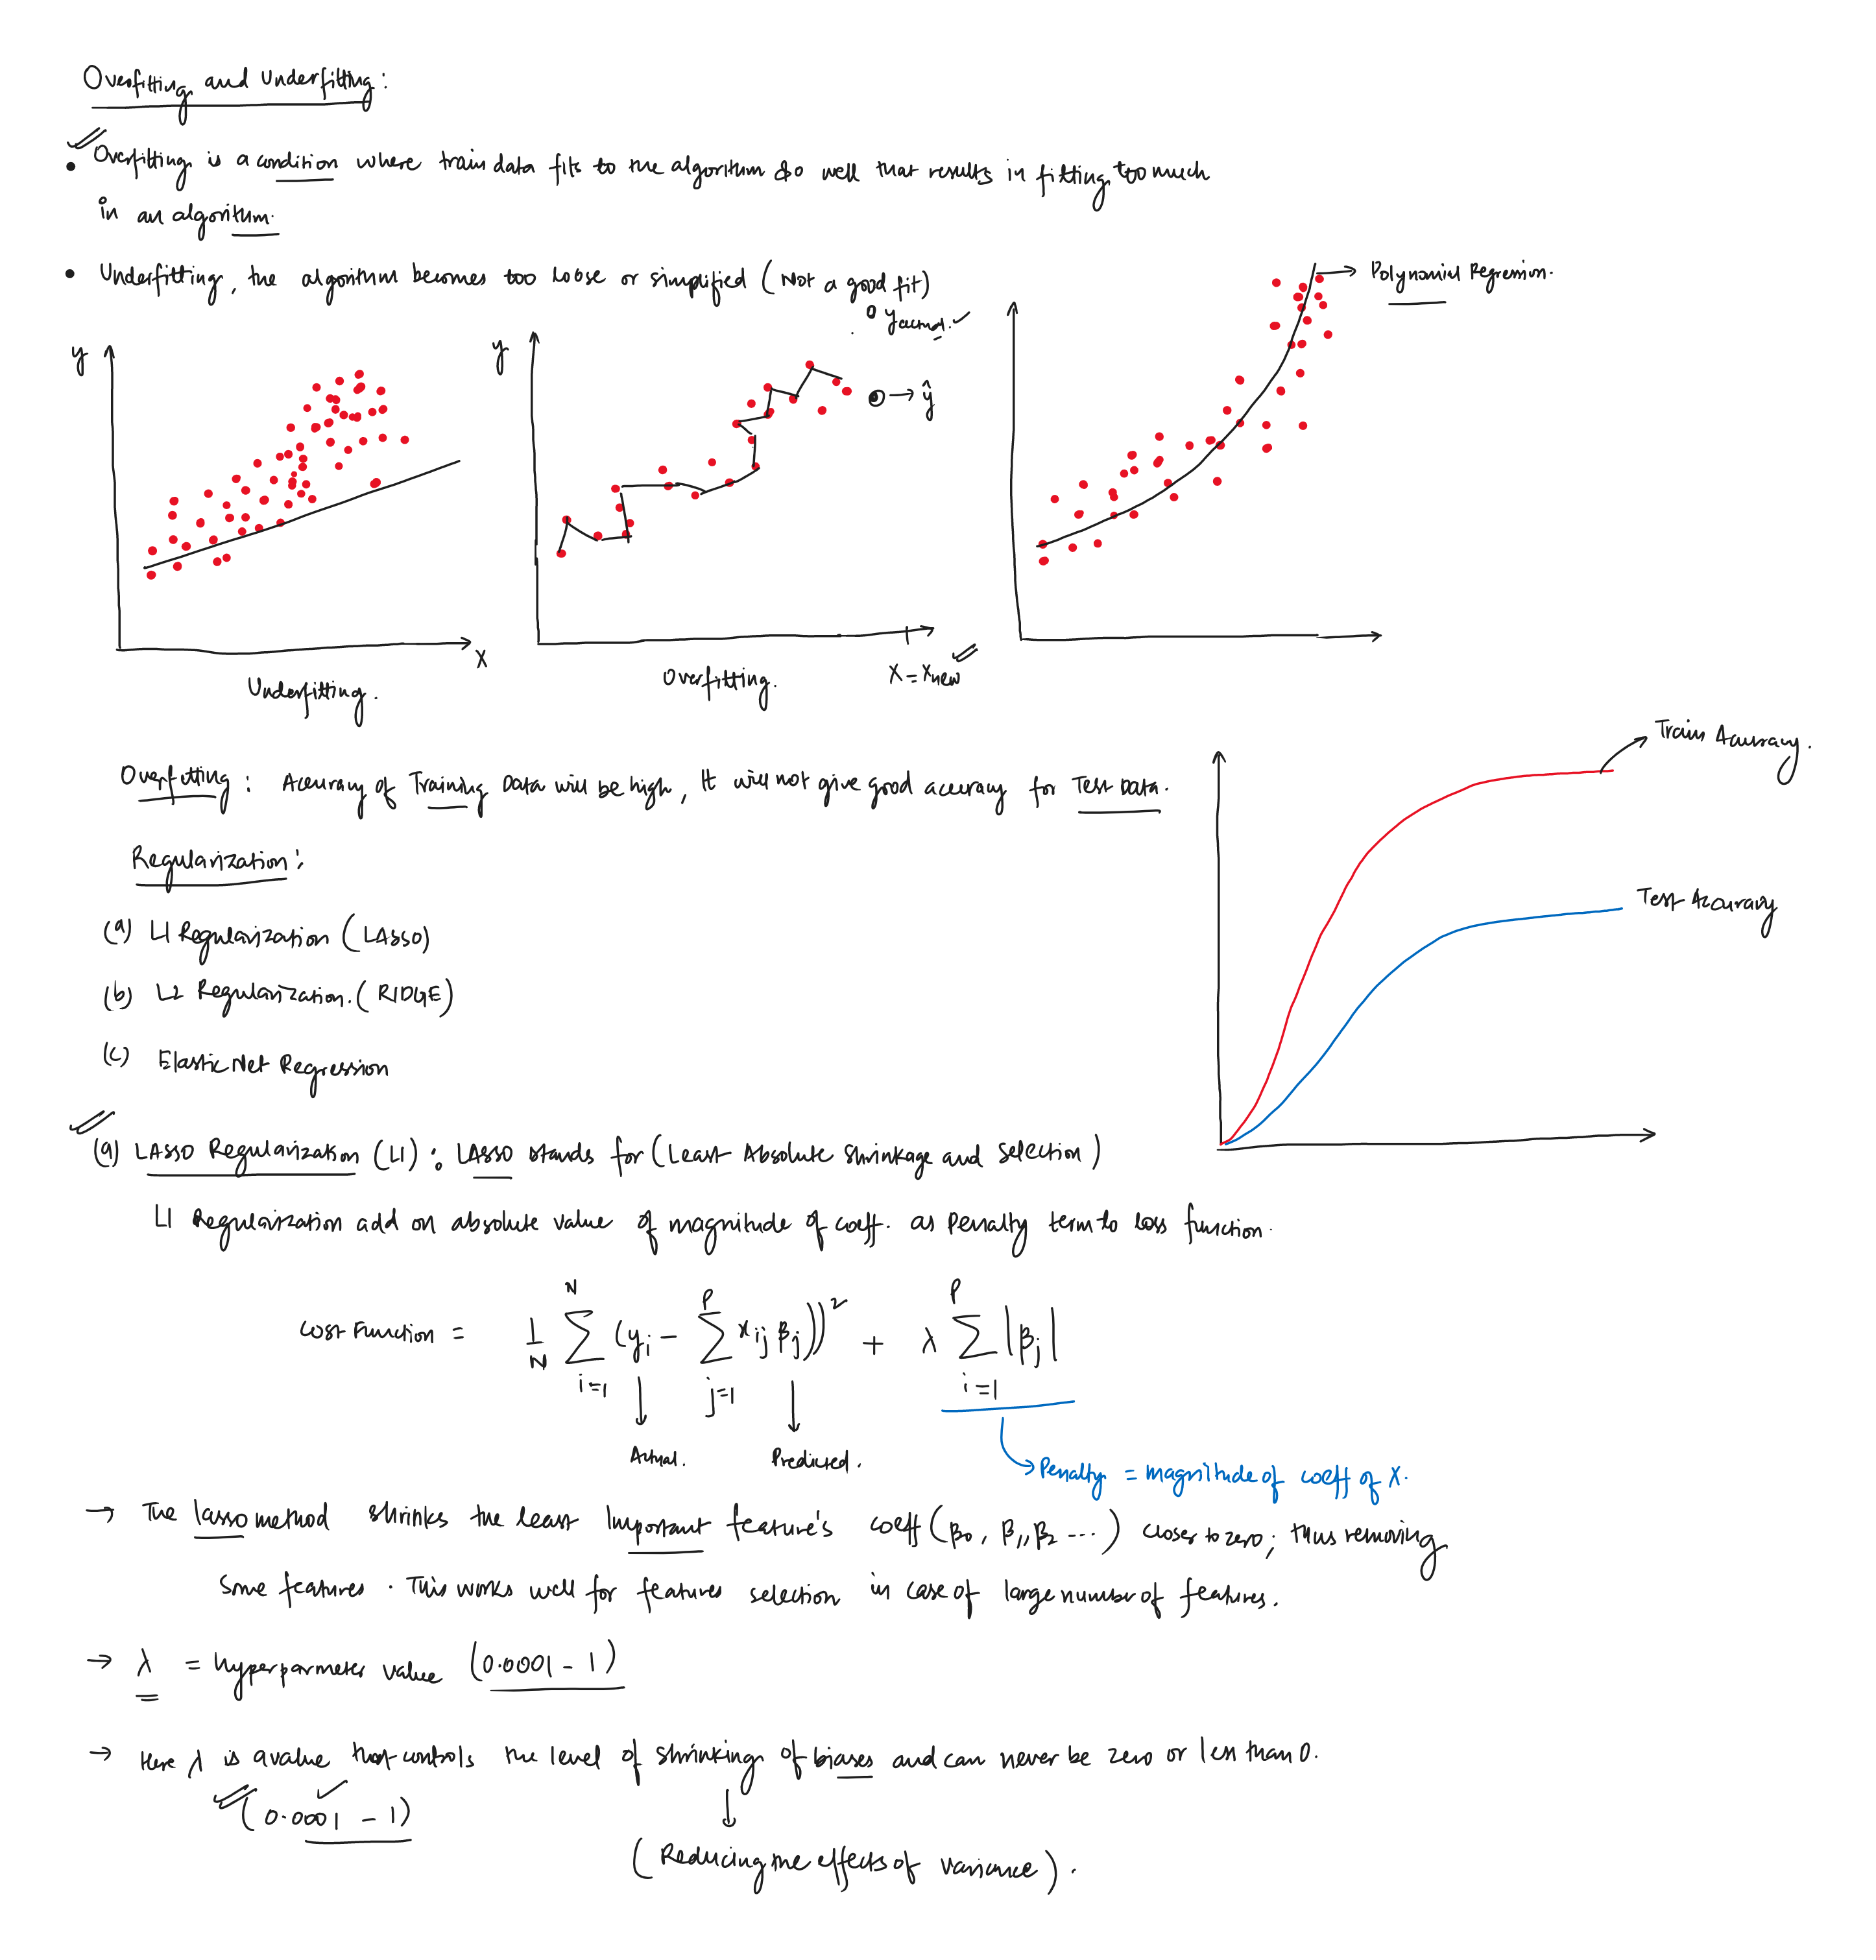 Overfitting and Underfitting:
• Overfitting is a condition where train data fits to the algorithm so well that results in fitting too much
in an algorithm.
• Underfitting, the algorithm becomes too loose or simplified (Not a good fit)
y
X
Underfitting.
y
yactual.
ŷ
X = Xnew
Overfitting.
Polynomial Regression.
Train Accuracy.
Test Accuracy
Overfitting: Accuracy of Training Data will be high, It will not give good accuracy for Test Data.
Regularization:
(a) L1 Regularization (LASSO)
(b) L2 Regularization. (RIDGE)
(c) Elastic Net Regression
(a) LASSO Regularization (L1): LASSO stands for (Least Absolute Shrinkage and Selection)
L1 Regularization add on absolute value of magnitude of coeff. as penalty term to loss function.
Cost Function = 1/N Σ_{i=1}^{N} (yi − Σ_{j=1}^{P} xij βj))² + λ Σ_{i=1}^{P} |βj|
Actual. Predicted.
→ Penalty = magnitude of coeff of X.
→ The lasso method shrinks the least important feature's coeff (β0, β1, β2 ...) closer to zero; thus removing
some features. This works well for features selection in case of large number of features.
→ λ = hyperparmeter value (0.0001 - 1)
→ Here λ is a value that controls the level of shrinking of biases and can never be zero or less than 0.
(0.0001 - 1)
(Reducing the effects of variance).